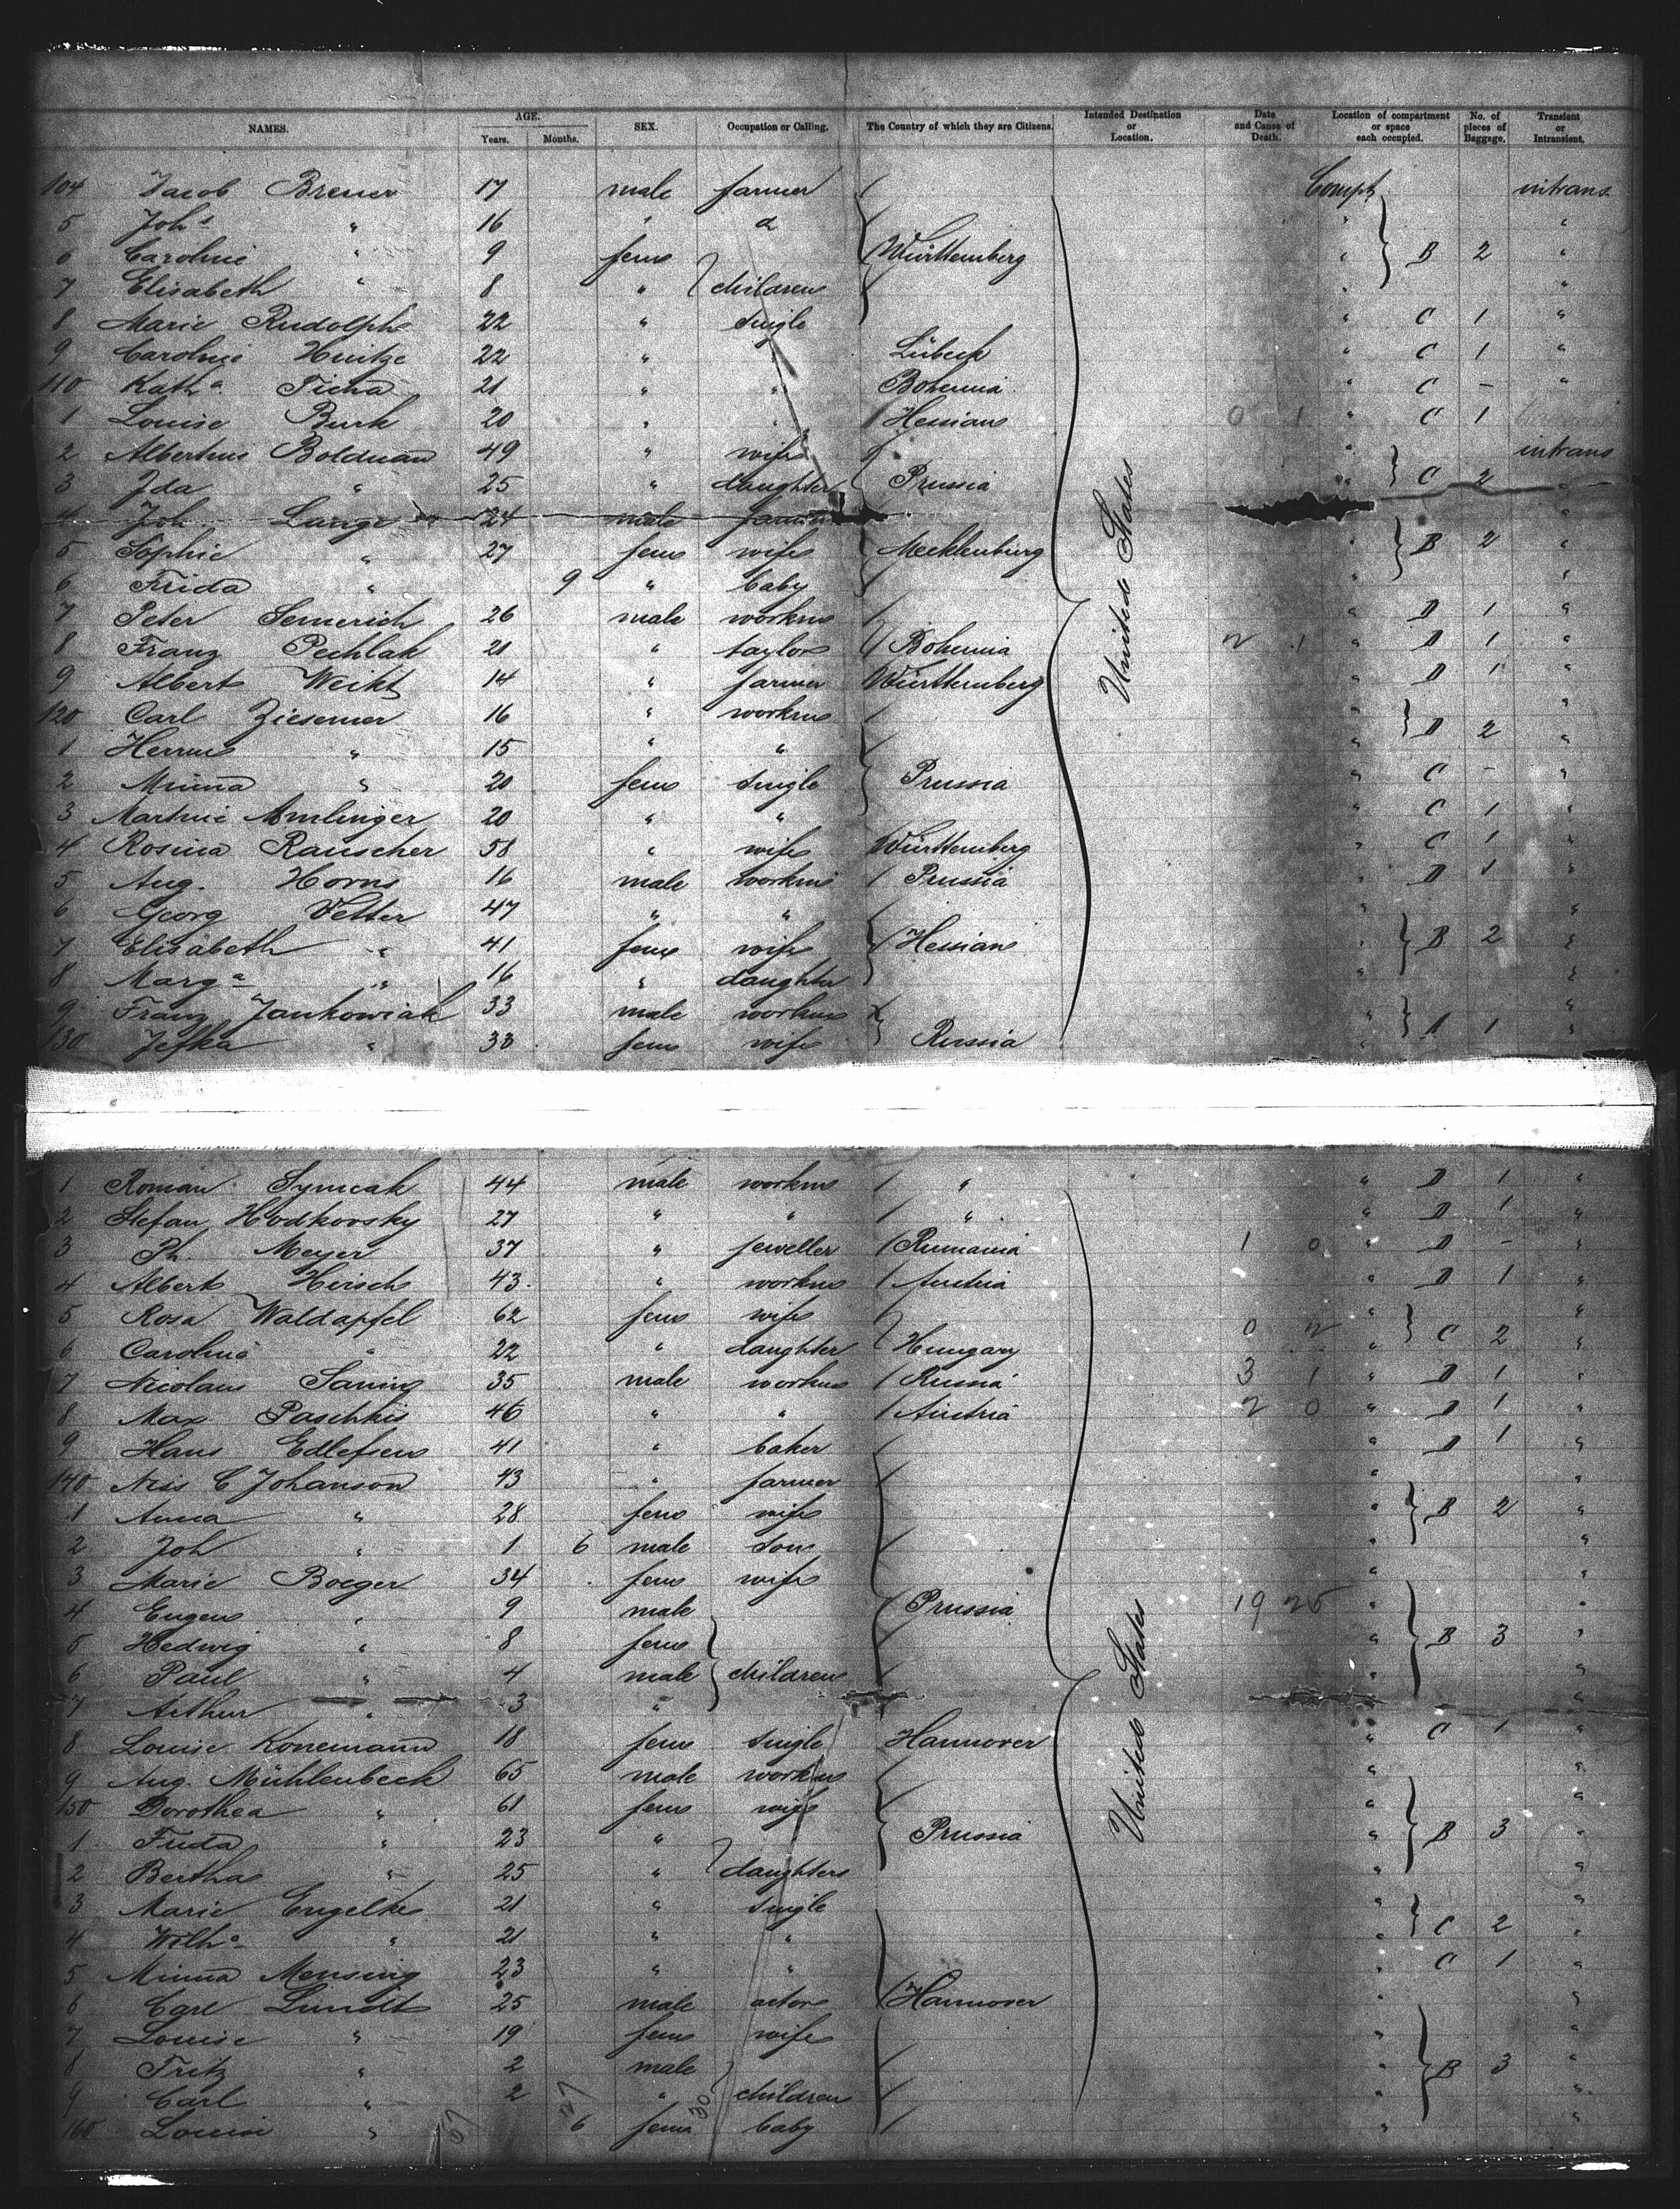 NAMES. AGE. Years. Months. SEX. Occupation or Calling. The Country of which they are Citizens. Intended Destination or Location. Date and Cause of Death. Location of compartment or space each occupied. No. of pieces of Baggage. Transient or Intransient.
104 Jacob Breuer 17 male farmer Compt intrans
5 Johs " 16 " d " "
6 Caroline " 9 fem Württemberg " B 2 "
7 Elisabeth " 8 " children " "
8 Marie Rudolph 22 " single " C 1 "
9 Caroline Hintze 22 " " Lübeck " C 1 "
110 Katha Ticha 21 " " Bohemia " C - "
1 Louise Burk 20 " " Hessian 0 1 " C 1
2 Albertine Bolduan 49 " wife " intrans
3 Ida " 25 " daughter Prussia " C 2 "
4 Joh. Lange 24 male farmer "
5 Sophie " 27 fem wife Mecklenburg " B 2 "
6 Frida " 9 " baby " "
7 Peter Semerich 26 male workm " D 1 "
8 Franz Pechlak 21 " taylor Bohemia 2 1 " D 1 "
9 Albert Weikt 14 " farmer Württemberg " D 1 "
120 Carl Ziesemer 16 " workm " "
1 Herrm " 15 " " " D 2 "
2 Minna " 20 fem single Prussia " C - "
3 Martine Amlinger 20 " " " C 1 "
4 Rosina Rauscher 58 " wife Württemberg " C 1 "
5 Aug. Horn 16 male workm Prussia " D 1 "
6 Georg Vetter 47 " " " "
7 Elisabeth " 41 fem wife Hessian " B 2 "
8 Marga " 16 " daughter " "
9 Franz Jankowiak 33 male workm " "
130 Jefka " 33 fem wife Russia " 1 "
United States
1 Roman Symcak 44 male workm " " D 1 "
2 Stefan Hodkovsky 27 " " " " D 1 "
3 Ph. Meyer 37 " jeweller Rumania 1 0 " D - "
4 Albert Hirsch 43 " workm Austria " D 1 "
5 Rosa Waldapfel 62 fem wife " "
6 Caroline " 22 " daughter Hungary 0 2 " C 2 "
7 Nicolaus Saning 35 male workm Russia 3 1 " D 1 "
8 Max Paschkis 46 " " Austria 2 0 " D 1 "
9 Hans Edlefsen 41 " baker " D 1 "
140 Niss C Johanson 43 " farmer " "
1 Anna " 28 fem wife " B 2 "
2 Joh " 1 6 male son " "
3 Marie Boeger 34 fem wife " "
4 Eugen " 9 male Prussia 19 25 " "
5 Hedwig " 8 fem " B 3 "
6 Paul " 4 male children " "
7 Arthur " 3 " "
8 Louise Konemann 18 fem single Hannover " C 1 "
9 Aug. Mühlenbeck 65 male workm " "
150 Dorothea " 61 fem wife " "
1 Frida " 23 " Prussia " B 3 "
2 Bertha " 25 " daughters " "
3 Marie Engelke 21 " single " "
4 Wilhe " 21 " " " C 2 "
5 Minna Mensing 23 " " " C 1 "
6 Carl Lundt 25 male actor Hannover " "
7 Louise " 19 fem wife " "
8 Fritz " 2 male " B 3 "
9 Carl " 2 " children " "
160 Louise " 6 fem baby " "
United States
27 30